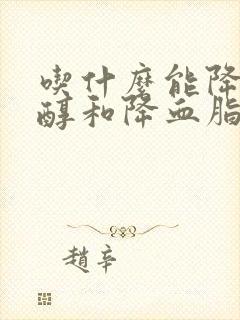 喫什麼能降
醇和降血脂
趙辛